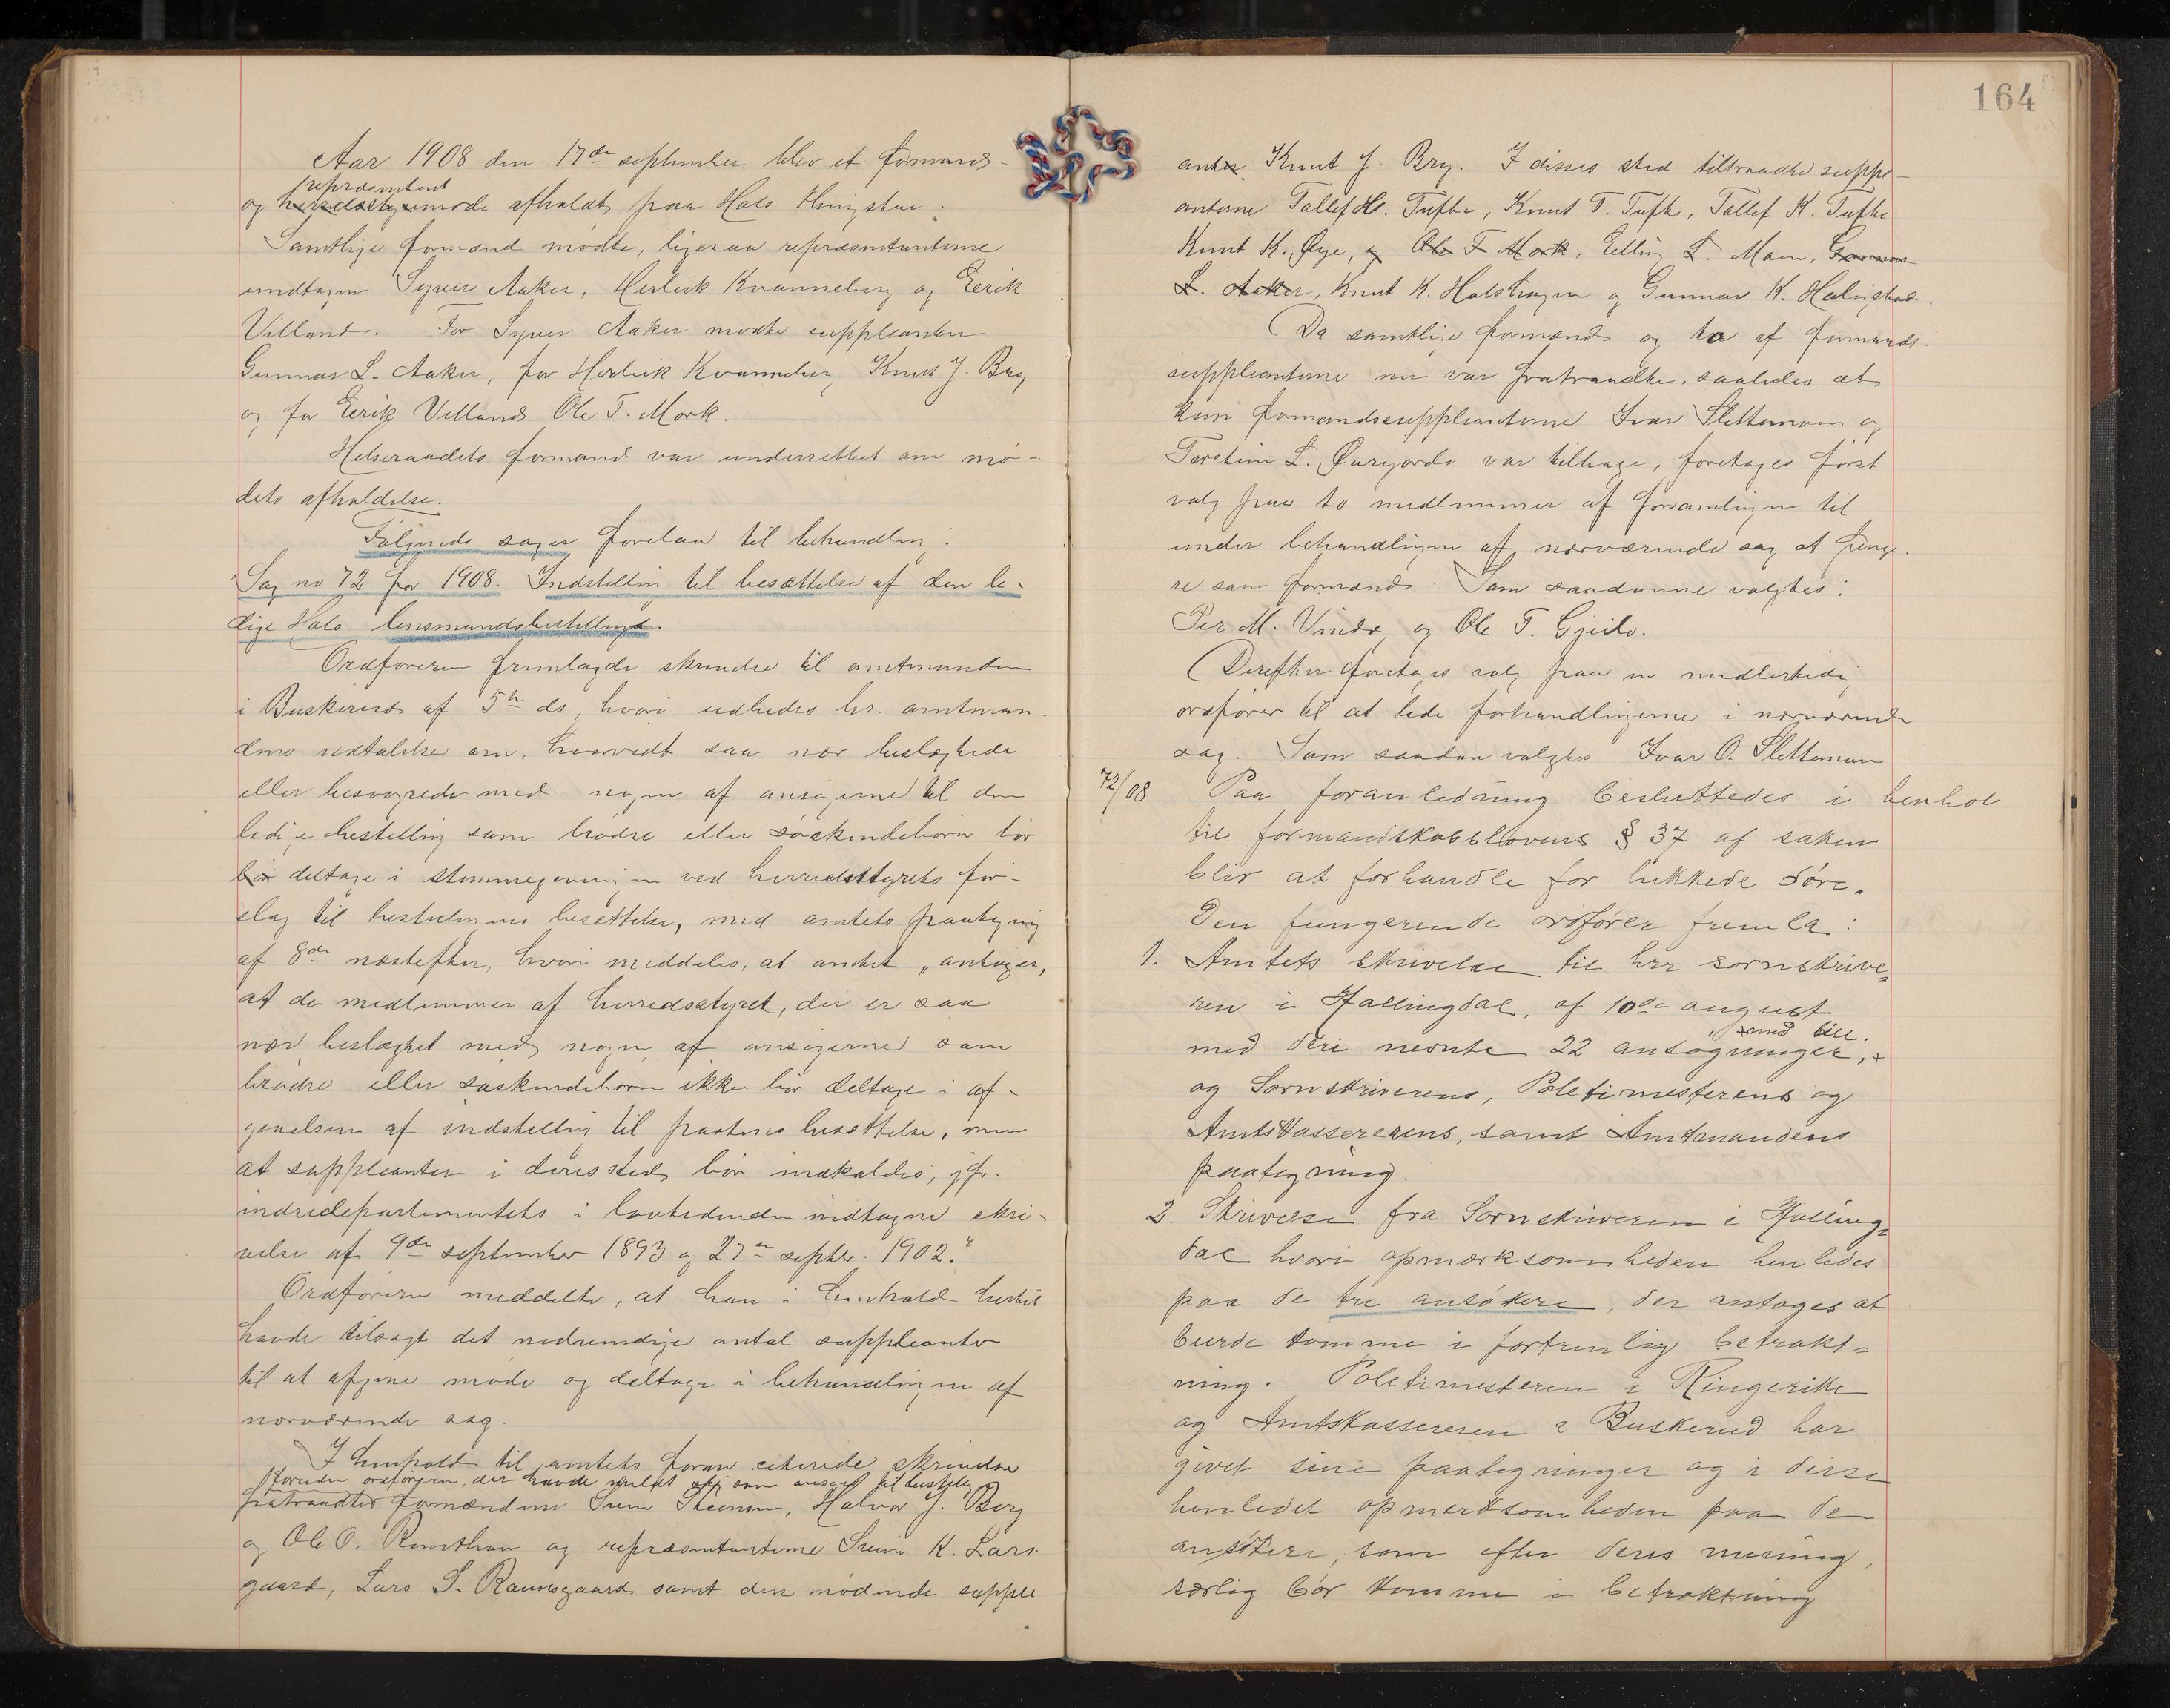 164
Aar 1908 den 17de september blev et formands-
repræsentant
og herredsstyremøde afholdt paa Hols thingstue.
Samtlige formænd mødte, ligesaa repræsentanterne
undtagen Syver Aaker, Herleik Kvanneberg og Eerik
Villand. For Syver Aaker mødte suppleanten
Gunnar L. Aaker, for Herleik Kvanneberg, Knut J. Bry
og for Eerik Villand Ole T. Mork.
Helseraadets formand var underrettet om mø-
dets afholdelse.
Følgende sager forelaa til behandling:
Sag no 72 for 1908. Indstilling til besættelse af den le-
dige Hols lensmandsbestilling.
Ordføreren fremlagde skrivelse til amtmanden
i Buskerud af 5te ds., hvori udbedes hr. amtman-
dens udtalelse om, hvorvidt saa nær beslægtede
eller besvogrede med nogen af ansøgerne til den
ledige bestilling som brødre eller søskendebørn bør
bør deltage i stemmegivningen ved herredsstyrets for-
slag til bestillingens besættelse, med amtets paategning
af 8de næstefter, hvori meddeles, at amtet „antager,
at de medlemmer af herredsstyret, der er saa
nær beslægtet med nogen af ansøgerne som
brødre eller søskendebørn ikke bør deltage i af-
givelsen af indstilling til postens besættelse, men
at suppleanter i deres sted bør indkaldes, jfr.
indredepartementets i lovtidenden indtagne skri-
velse af 9de september 1893 og 27de septbr. 1902."
Ordføreren meddelte, at han i henhold hertil
havde tilsagt det nødvendige antal suppleanter
til at afgive møde og deltage i behandlingen af
nærværende sag.
I henhold til amtets foran citerede skrivelse
foruden ordføreren, der havde meldt sig som ansøger til bestillingen
fratraadte formændene Svein Steensen, Halvor J. Berg
og Ole O. Rensthon og repræsentanterne Svein K. Lars-
gaard, Lars S. Raunsgaard samt den mødende supple
anter Knut J. Bry. I disses sted tiltraadte supple-
anterne Tollef H. Tufte, Knut T. Tufte, Tollef K. Tufte
Knut K. Øye, og Ole T Mork, Elling L. Moen, Gunnar
L. Aaker, Knut K. Holshagen og Gunnar K. Halingstad.
Da samtlige formænd og to af formands-
suppleanterne nu var fratraadte, saaledes at
kun formandssuppleanterne Ivar Slettemoen og
Torstein L. Øvregard var tilbage, foretages først
valg paa to medlemmer af forsamlingen til
under behandlingen af nærværende sag at funge-
re som formænd. Som saadanne valgtes:
Per M. Vindo, og Ole T. Gjeilo.
Derefter foretages valg paa en midlertidig
ordfører til at lede forhandlingerne i nærværende
sag. Som saadan valgtes Ivar O. Slettemoen
72/08 Paa foranledning besluttedes i henhol
til formandskabslovens § 37 af saken
blir at forhandle for lukkede døre.
Den fungerende ordfører fremla:
1. Amtets skrivelse til herr sorenskrive-
ren i Hallingdal, af 10de august
+ med bill.
med deri nevnte 22 ansøgninger, +
og Sorenskriverens, Politimesterens og
Amtskassererens, samt Amtmandens
paategning.
2. Skrivelse fra Sorenskriveren i Halling-
dal hvori opmærksomheden henledes
paa de tre ansøkere, der antages at
burde komme i fortrinlig betrakt-
ning. Politimesteren i Ringerike
og Amtskassereren i Buskerud har
givet sine paategninger og i disse
henledet opmerksomheden paa de
ansøkere, som efter deres mening,
særlig bør komme i betraktning